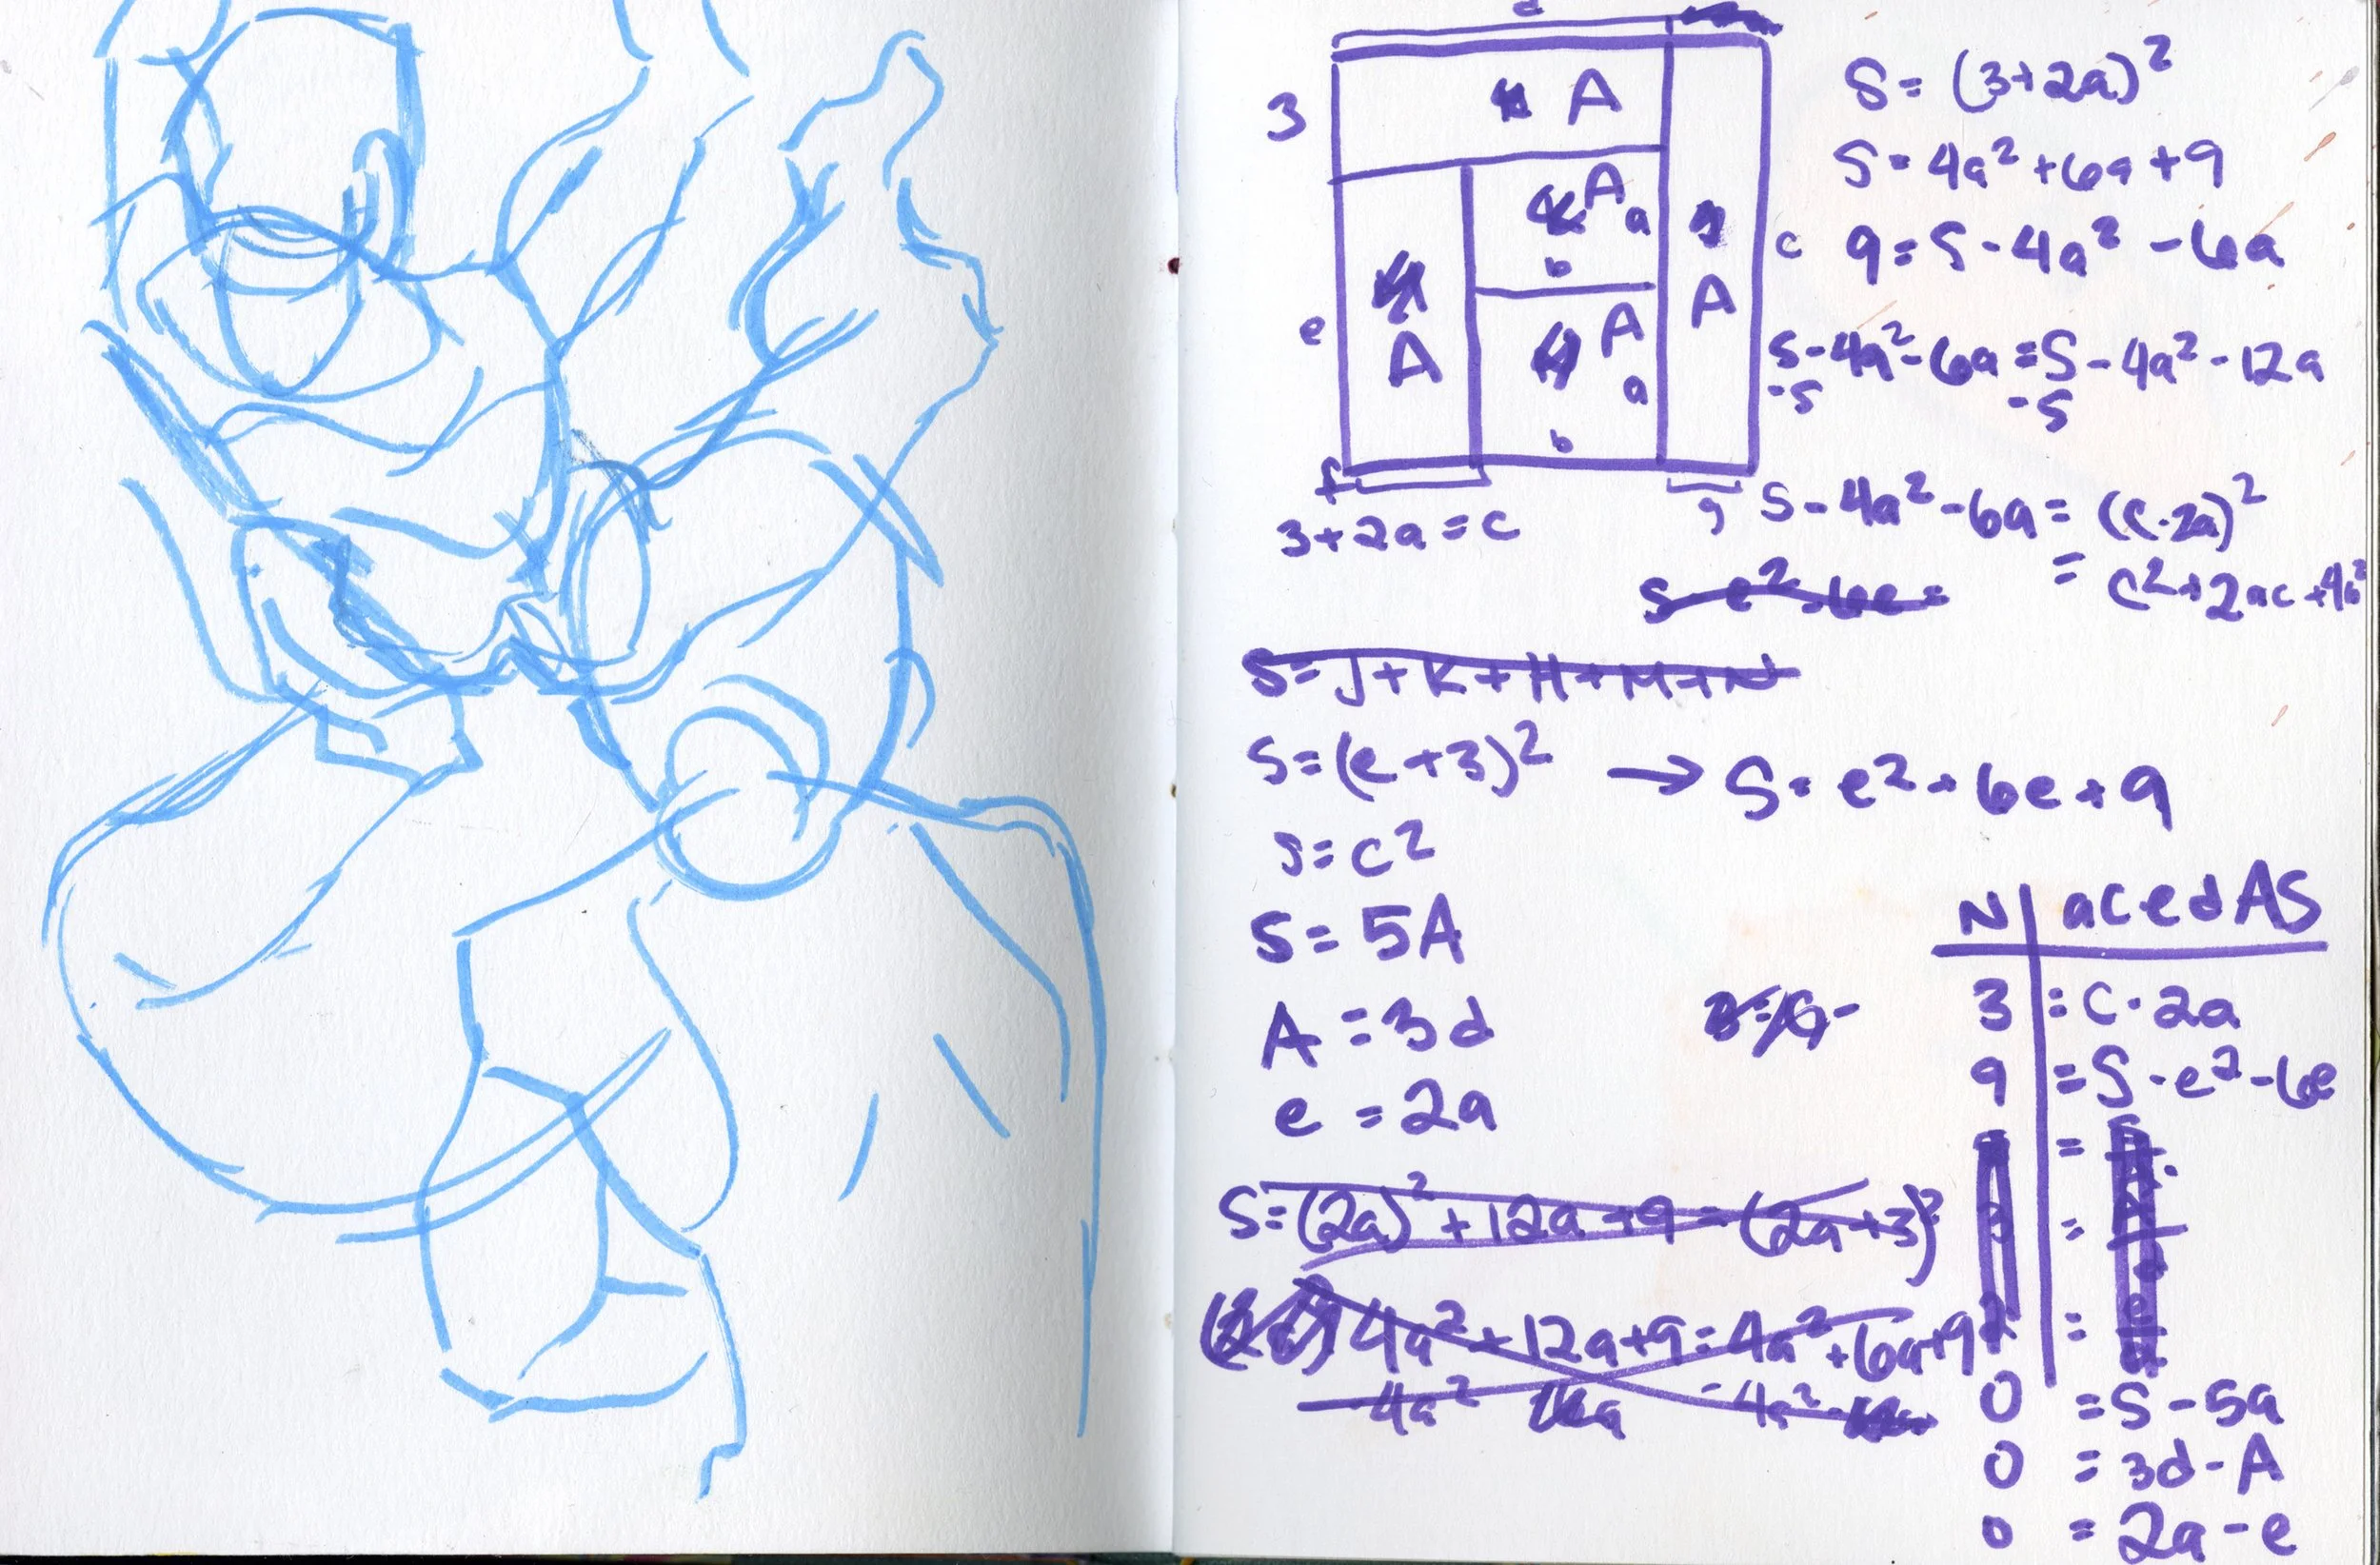 d
3
A
A
a
b
e
A
A
a
b
A
c
f
g
3+2a=c
S=(3+2a)²
S=4a²+6a+9
9=S-4a²-6a
S-4a²-6a=S-4a²-12a
-S -S
S-4a²-6a=(c-2a)²
= c²+2ac+4a²
S-e²-6e=
S=J+K+H+M+N
S=(e+3)² → S=e²+6e+9
S=c²
S=5A
A=3d
e=2a
S=(2a)²+12a+9=(2a+3)²
4a²+12a+9=4a²+6a+9
-4a² -4a²
N acedAS
3 =c-2a
9 =S-e²-6e
0 =S-5a
0 =3d-A
0 =2a-e